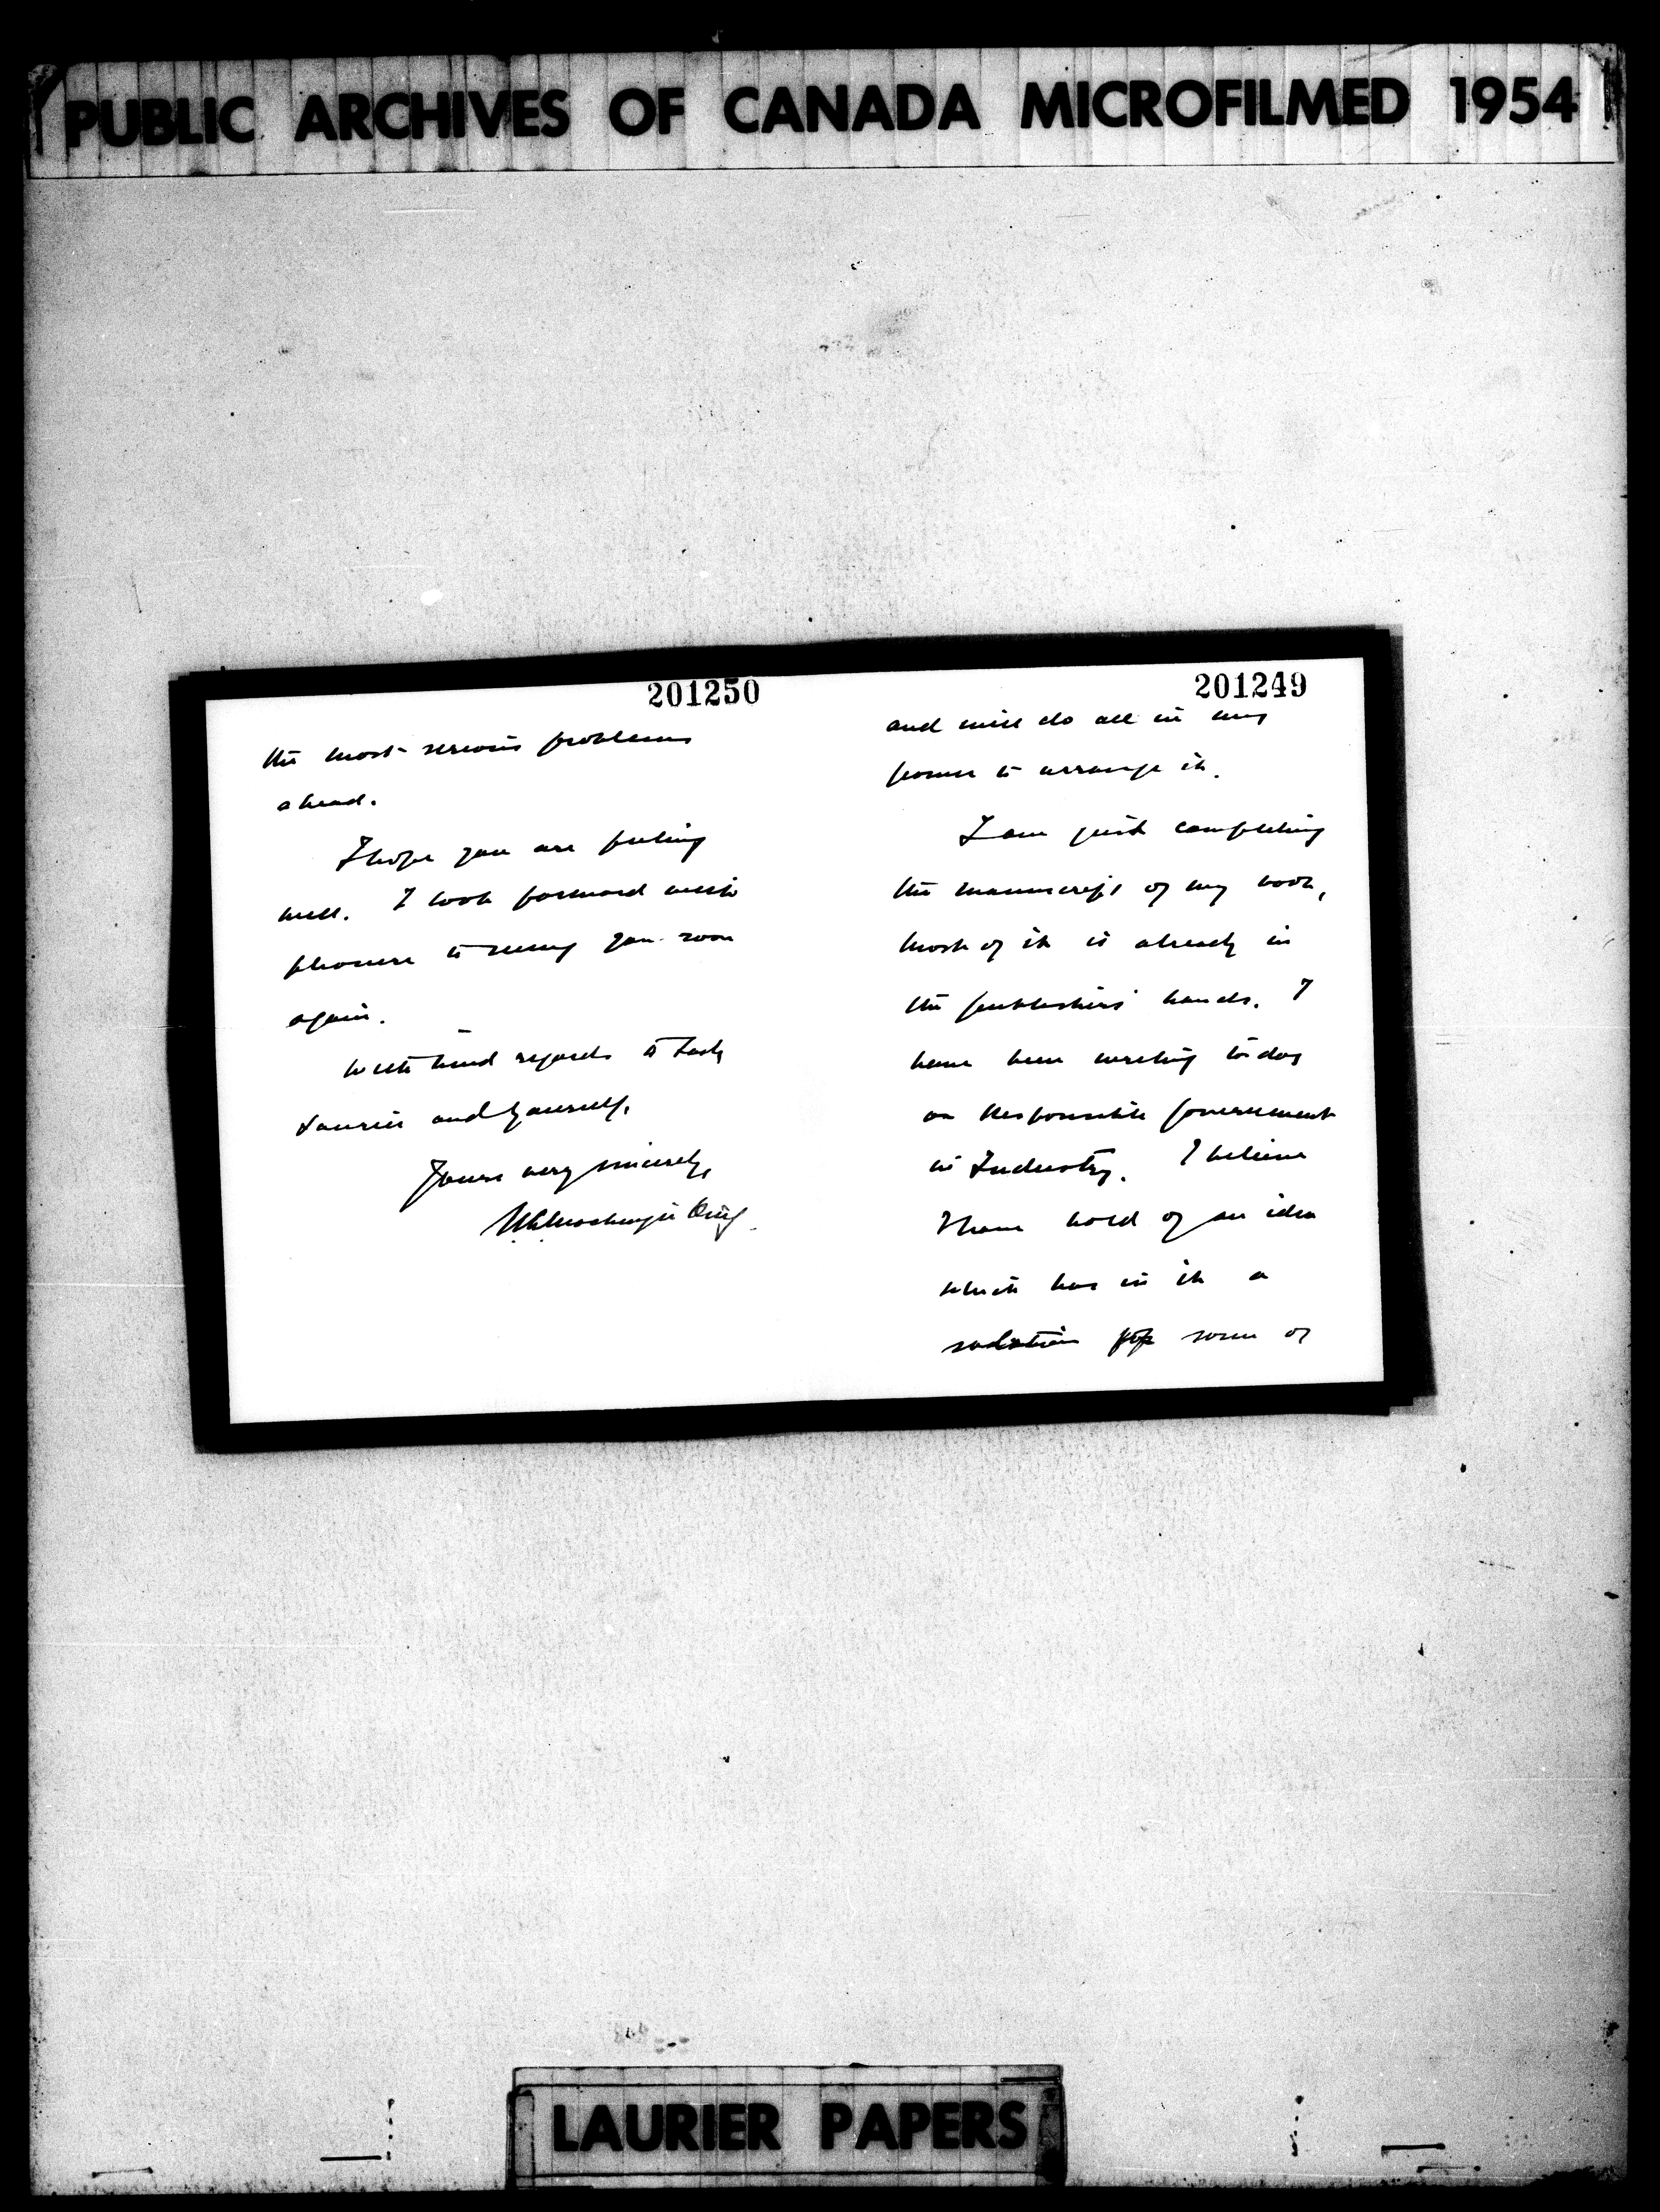 PUBLIC ARCHIVES OF CANADA MICROFILMED 1954
201250
the most serious problems
ahead.
I hope you are feeling
well. I look forward with
pleasure to seeing you soon
again.
With kind regards to Lady
Laurier and yourself,
Yours very sincerely,
W L Mackenzie King
201249
and will do all in my
power to arrange it.
I am just completing
the manuscript of my book,
most of it is already in
the publishers' hands. I
have been writing today
on Responsible Government
in Industry. I believe
I have hold of an idea
which has in it a
solution for some of
LAURIER PAPERS